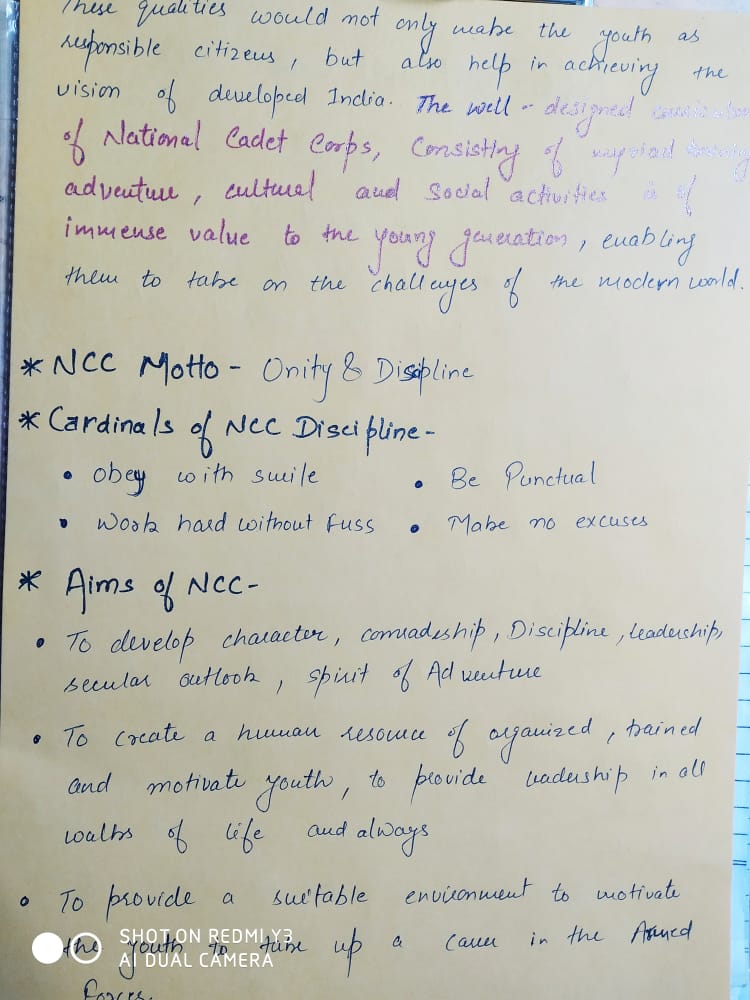 These qualities would not only make the youth as
responsible citizens, but also help in achieving the
vision of developed India. The well-designed
of National Cadet Corps, Consisting of myriad
adventure, cultural and Social activities is of
immense value to the young generation, enabling
them to take on the challenges of the modern world.
* NCC Motto - Unity & Discipline
* Cardinals of NCC Discipline -
• Obey with smile • Be Punctual
• Work hard without Fuss • Make no excuses
* Aims of NCC -
• To develop character, comradeship, Discipline, leadership,
secular outlook, spirit of Adventure
• To create a human resource of organized, trained
and motivate youth, to provide leadership in all
walks of life and always
• To provide a suitable environment to motivate
the youth to take up a career in the Armed
Forces.
SHOT ON REDMI Y3
AI DUAL CAMERA